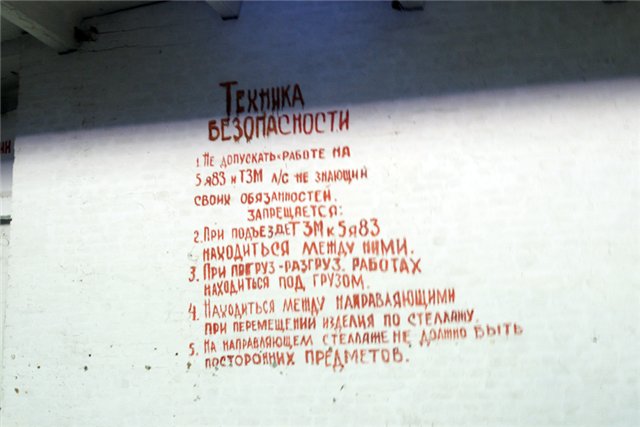 Техника
безопасности
1. Не допускать к работе на
5я83 и ТЗМ л/с не знающий
своих обязанностей.
Запрещается:
2. При подъезде ТЗМ к 5я83
находиться между ними.
3. При погруз-разгруз. работах
находиться под грузом.
4. Находиться между направляющими
при перемещении изделия по стеллажу.
5. На направляющем стеллаже не должно быть
посторонних предметов.